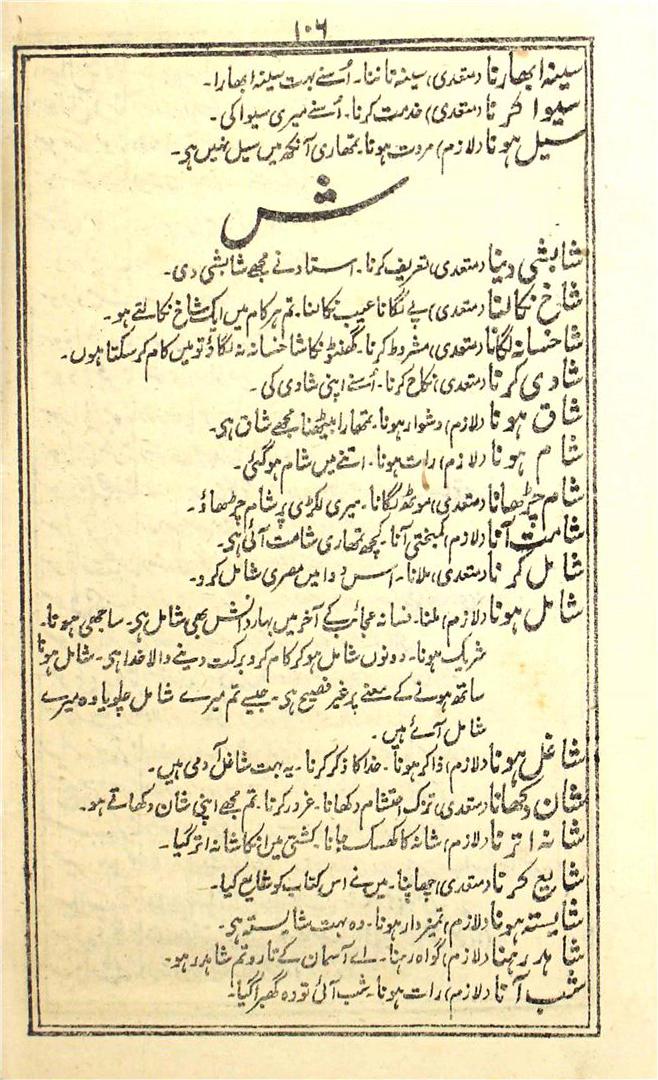 ۱۰۶
سینہ ابھارنا (متعدی) سینہ تاننا۔ اُسنے بہت سینہ ابھارا۔
سیوا کرنا (متعدی) خدمت کرنا۔ اُسنے میری سیوا کی۔
سیل ہونا (لازم) مروت ہونا۔ تمھاری آنکھ میں سیل نہیں ہی۔
ش
شابشی دینا (متعدی) تعریف کرنا۔ استاد نے مجھے شابشی دی۔
شاخ نکالنا (متعدی) پے لگانا عیب نکالنا۔ تم ہر کام میں ایک شاخ نکالتے ہو۔
شاخسانہ لگانا (متعدی) مشروط کرنا۔ گھنٹونکا شاخسانہ نہ لگاؤ تو میں کام کر سکتا ہوں۔
شادی کرنا (متعدی) نکاح کرنا۔ اُسنے اپنی شادی کی۔
شاق ہونا (لازم) دشوار ہونا۔ تمھارا بیٹھنا مجھے شاق ہی۔
شام ہونا (لازم) رات ہونا۔ اتنے میں شام ہو گئی۔
شام چڑھانا (متعدی) موٹھ لگانا۔ میری لکڑی پر شام چڑھاؤ۔
شامت آنا (لازم) کمبختی آنا۔ کچھ تمھاری شامت آئی ہی۔
شامل کرنا (متعدی) ملانا۔ اس دوا میں مصری شامل کرو۔
شامل ہونا (لازم) ملنا۔ فسانہ عجائب کے آخر میں بہار دانش بھی شامل ہی۔ ساجھی ہونا۔
شریک ہونا۔ دونوں شامل ہو کر کام کرو برکت دینے والا خدا ہی۔ شامل ہونا
ساتھ ہونے کے معنے پر غیر فصیح ہی۔ جیسے تم میرے شامل چلو یا وہ میرے
شامل آئے ہیں۔
شاغل ہونا (لازم) ذاکر ہونا۔ خدا کا ذکر کرنا۔ یہ بہت شاغل آدمی ہیں۔
شان دکھانا (متعدی) تزک احتشام دکھانا۔ غرور کرنا۔ تم مجھے اپنی شان دکھاتے ہو۔
شانہ اترنا (لازم) شانہ کا کھسک جانا۔ کشتی میں انکا شانہ اتر گیا۔
شایع کرنا (متعدی) چھاپنا۔ میں نے اس کتاب کو شایع کیا۔
شایستہ ہونا (لازم) تمیز دار ہونا۔ وہ بہت شایستہ ہی۔
شاہد رہنا (لازم) گواہ رہنا۔ اے آسمان کے تارو تم شاہد رہو۔
شب آنا (لازم) رات ہونا۔ شب آئی تو وہ گھبرا گیا۔